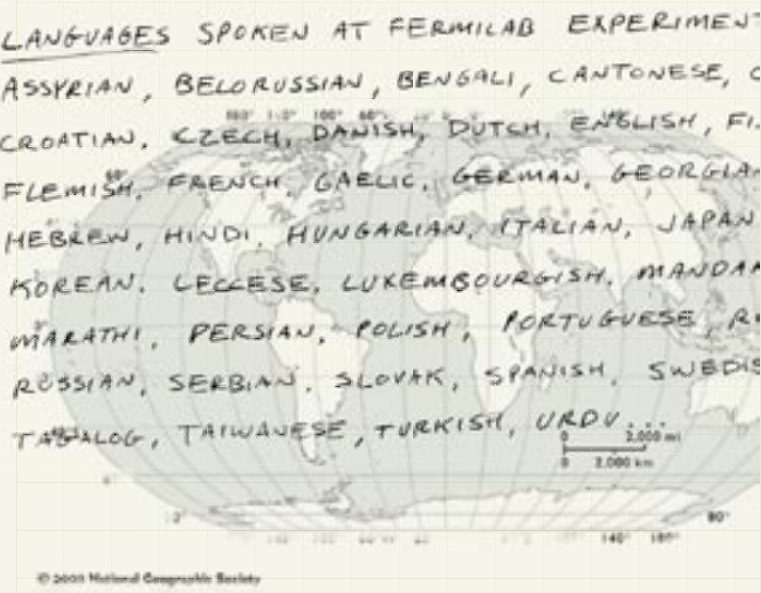 LANGUAGES SPOKEN AT FERMILAB EXPERIMEN
ASSYRIAN, BELORUSSIAN, BENGALI, CANTONESE, C
CROATIAN, CZECH, DANISH, DUTCH, ENGLISH, FI
FLEMISH, FRENCH, GAELIC, GERMAN, GEORGIA
HEBREW, HINDI, HUNGARIAN, ITALIAN, JAPAN
KOREAN, LECCESE, LUXEMBOURGISH, MANDAR
MARATHI, PERSIAN, POLISH, PORTUGUESE, R
RUSSIAN, SERBIAN, SLOVAK, SPANISH, SWEDIS
TAGALOG, TAIWANESE, TURKISH, URDU...
0 2,000 mi
0 2,000 km
80°
140° 160°
© 2000 National Geographic Society